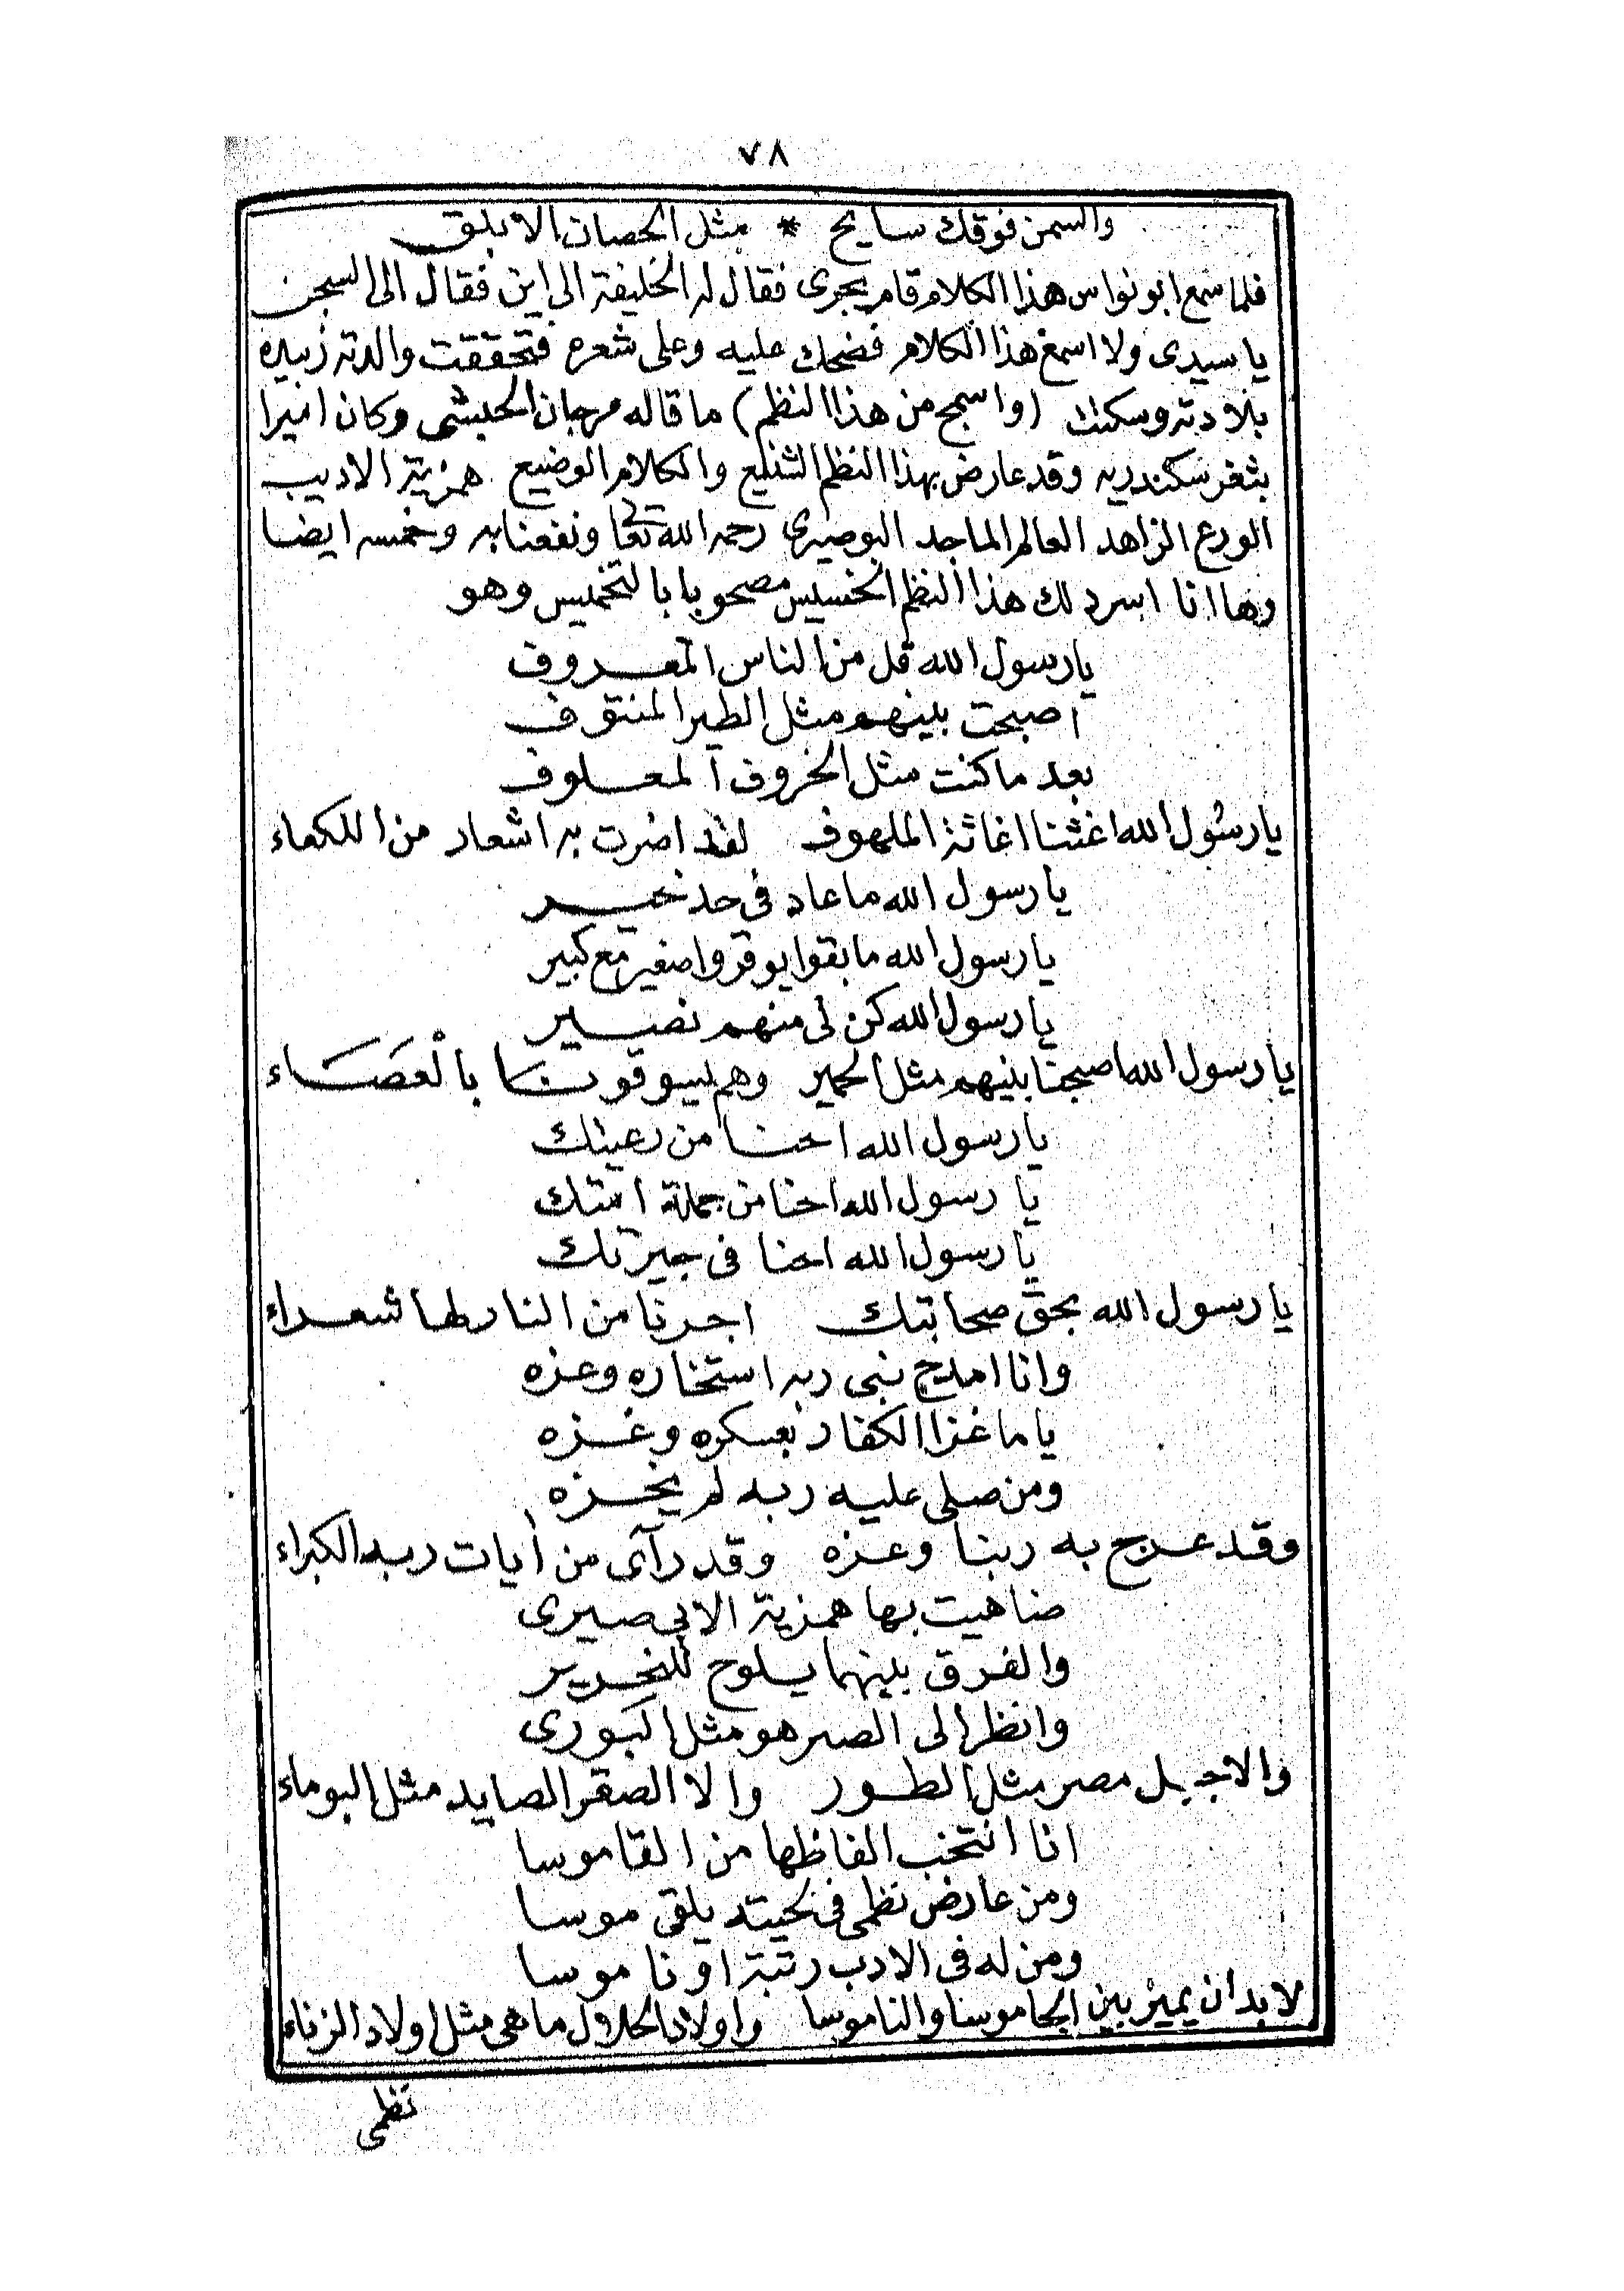 ٧٨
والسمن فوقك سايح * مثل الحصان الابلق
فلما سمع ابو نواس هذا الكلام قام يجرى فقال له الخليفة الى اين فقال الى السجن
يا سيدى ولا اسمع هذا الكلام فضحك عليه وعلى شعره فتحققت والدته زبيده
بلادته وسكتت (واسمج من هذا النظم) ما قاله مرجان الحبشى وكان اميرا
بثغر سكندريه وقد عارض بهذا النظم الشنيع والكلام الوضيع همزية الاديب
الورع الزاهد العالم الماجد البوصيرى رحمه الله تعا ونفعنا به وخمسه ايضا
وها انا اسرد لك هذا النظم الخسيس مصحوبا بالتخميس وهو
يا رسول الله قل من الناس المعروف
اصبحت بينهم مثل الطير المنتوف
بعد ما كنت مثل الخروف المعلوف
يا رسول الله اغثنا اغاثة الملهوف لقد اضرت به اشعار من اللكعاء
يا رسول الله ما عاد فى حد خير
يا رسول الله ما بقوا يوقروا صغير مع كبير
يا رسول الله كن لى منهم نصير
يا رسول الله اصبحنا بينهم مثل الحمير وهم يسوقونا بالْعَصَاء
يا رسول الله احنا من رعيتك
يا رسول الله احنا من جملة امتك
يا رسول الله احنا فى جيرتك
يا رسول الله بحق صحابتك اجرنا من النار لها شعراء
وانا امدح نبى ربه استخاره وعزه
ياما غزا الكفار بعسكره وغزه
ومن صلى عليه ربه لم يخزه
وقد عرج به ربنا وعزه وقد رآى من أيات ربه الكبراء
ضاهيت بها همزية الابى صيرى
والفرق بينهما يلوح للنحرير
وانظر الى الصير هو مثل البورى
والا جبل مصر مثل الطور والا الصقر الصايد مثل البوماء
انا انتخب الفاظها من القاموسا
ومن عارض نظمى فى لحيته يلقى موسا
ومن له فى الادب رتبة او ناموسا
لا بد ان يميز بين الجاموسا والناموسا واولاد الحلال ما هى مثل اولاد الزناء
نظمى